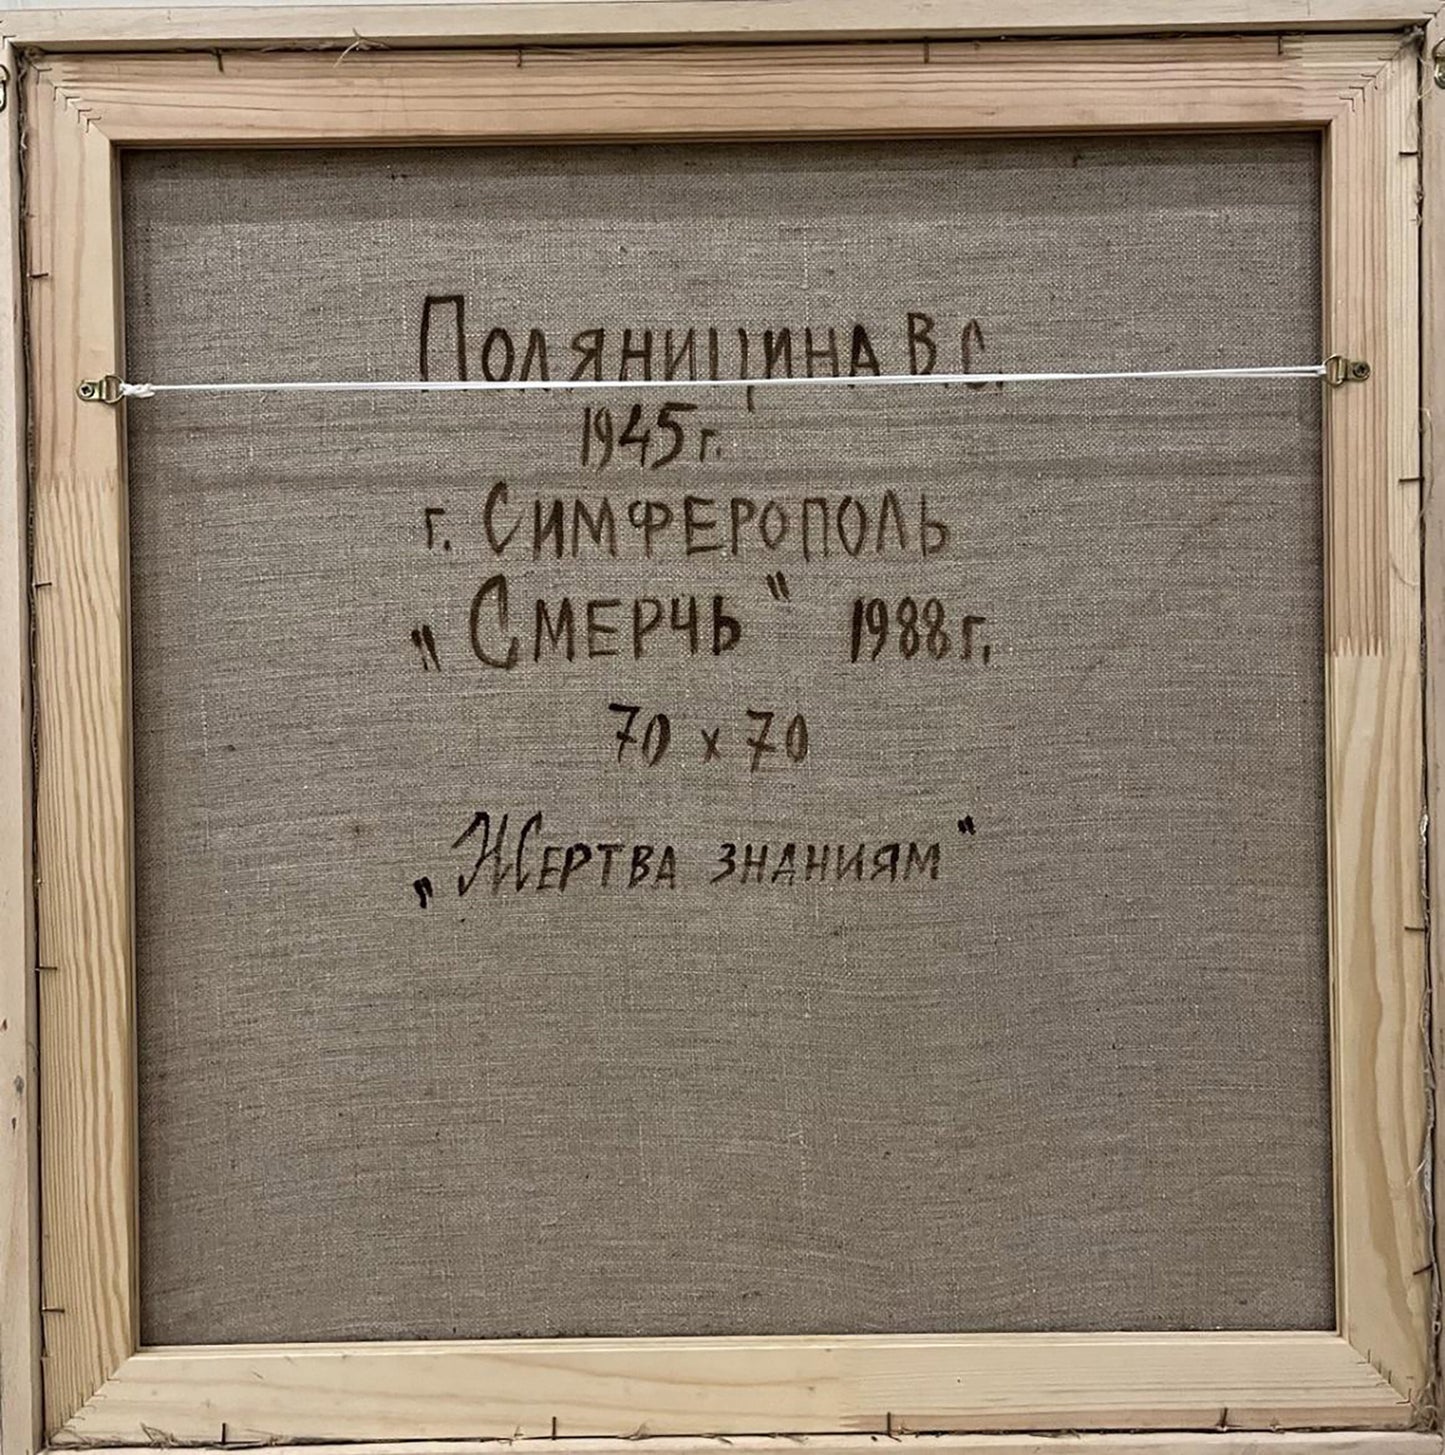 Поляницина В.С.
1945г.
г. Симферополь
„Смерчь" 1988г.
70 х 70
„Жертва знаниям"